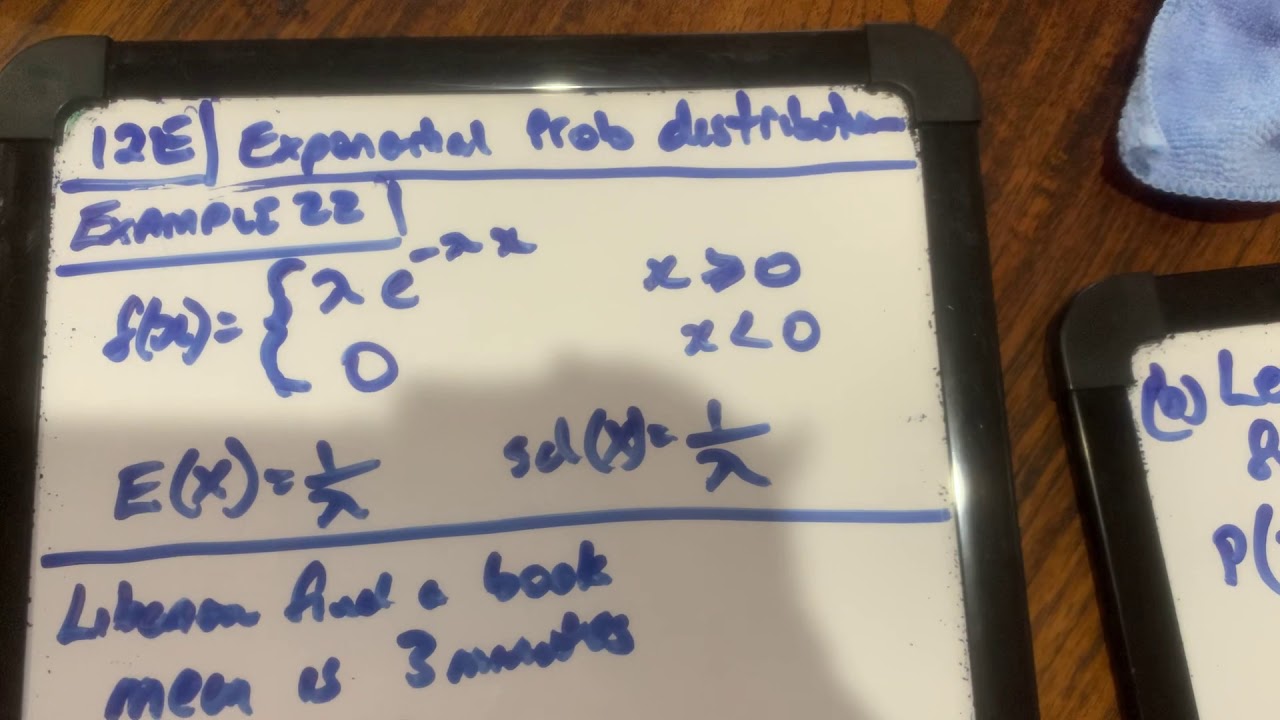 12E Exponential Prob distribution
EXAMPLE 22
f(x) = { λ e^-λx x ≥ 0
0 x < 0
E(X) = 1/λ sd(X) = 1/λ
find a book
mean is 3 minutes
(a) Le
P(